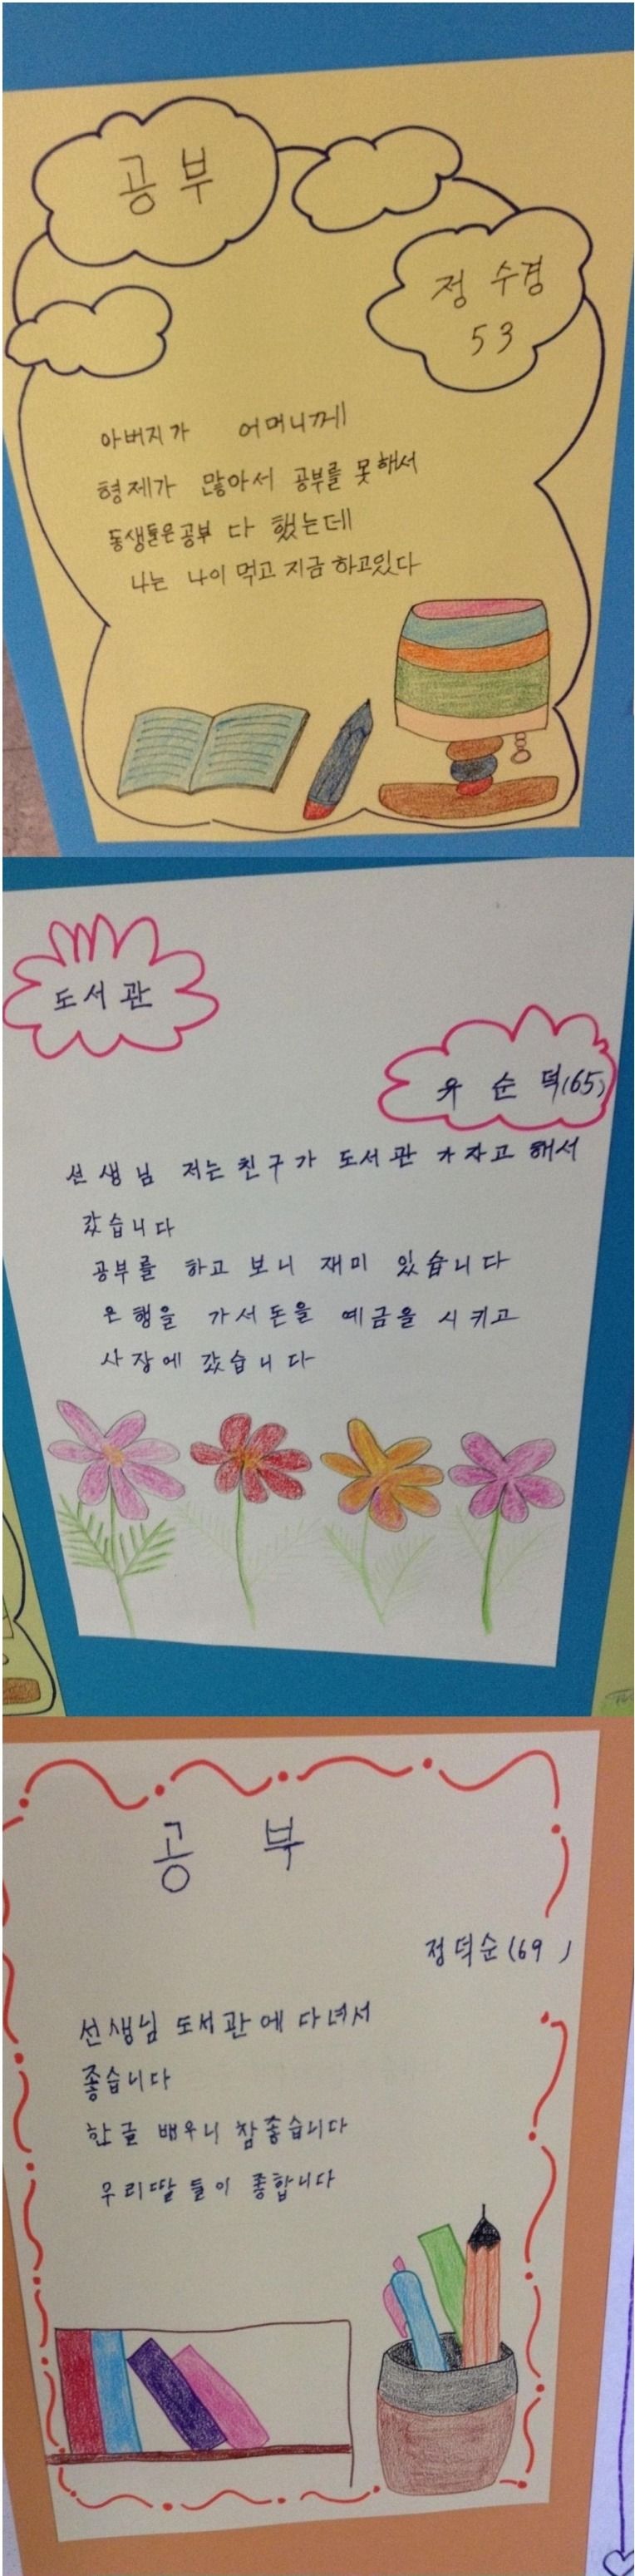 공부
정 수경
53
아버지가 어머니께
형제가 많아서 공부를 못해서
동생들은공부 다 했는데
나는 나이 먹고 지금 하고있다
도서관
유 순 덕(65)
선생님 저는 친구가 도서관 가자고 해서
갔습니다
공부를 하고 보니 재미 있습니다
은행을 가서돈을 예금을 시키고
사장에 갔습니다
공 부
정덕순(69)
선생님 도서관에 다녀서
좋습니다
한글 배우니 참좋습니다
우리딸 들이 종합니다